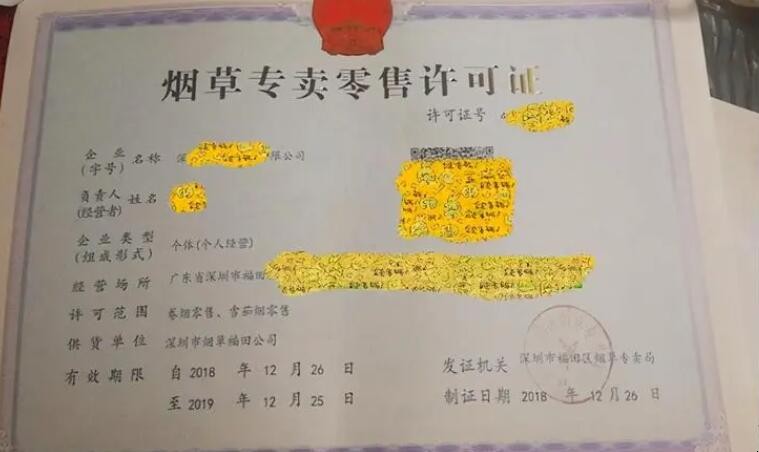 烟草专卖零售许可证
许可证号 4
企业(字号)名称 深 限公司
负责人(经营者)姓名
企业类型(组成形式) 个体(个人经营)
经营场所 广东省深圳市福田
许可范围 卷烟零售、雪茄烟零售
供货单位 深圳市烟草福田公司
发证机关 深圳市福田区烟草专卖局
有效期限 自 2018 年 12 月 26 日
至 2019 年 12 月 25 日
制证日期 2018 年 12 月 26 日